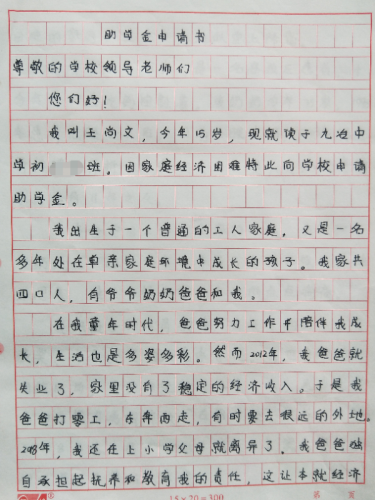 助学金申请书
尊敬的学校领导老师们
您们好！
我叫王尚文，今年15岁，现就读于九冶中
学初班。因家庭经济困难特此向学校申请
助学金。
我出生于一个普通的工人家庭，又是一名
多年处在单亲家庭环境中成长的孩子。我家共
四口人，有爷爷奶奶爸爸和我。
在我童年时代，爸爸努力工作并陪伴我成
长，生活也是多姿多彩。然而2012年，我爸爸就
失业了，家里没有了稳定的经济收入。于是我
爸爸打零工，东奔西走，有时要去很远的外地。
年，我还在上小学父母就离异了。我爸爸独
自承担起抚养和教育我的责任，这让本就经济
15×20=300
第 页